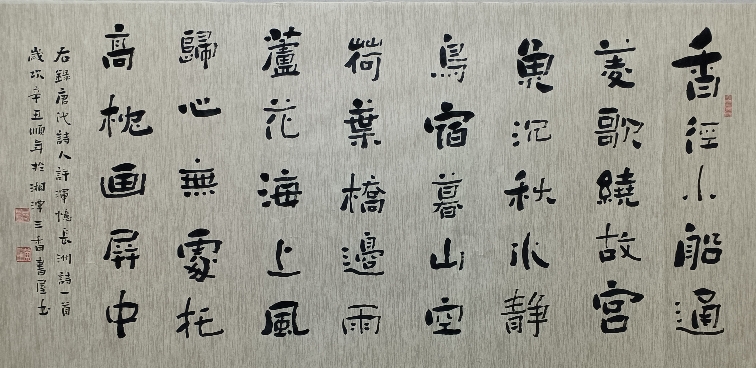 香徑小船通
菱歌繞故宮
魚沉秋水静
鳥宿暮山空
荷葉橋邊雨
蘆花海上風
歸心無處托
高枕画屏中
右錄唐代詩人許渾憶長洲詩一首
歲次辛丑順年於湘潭三香書屋